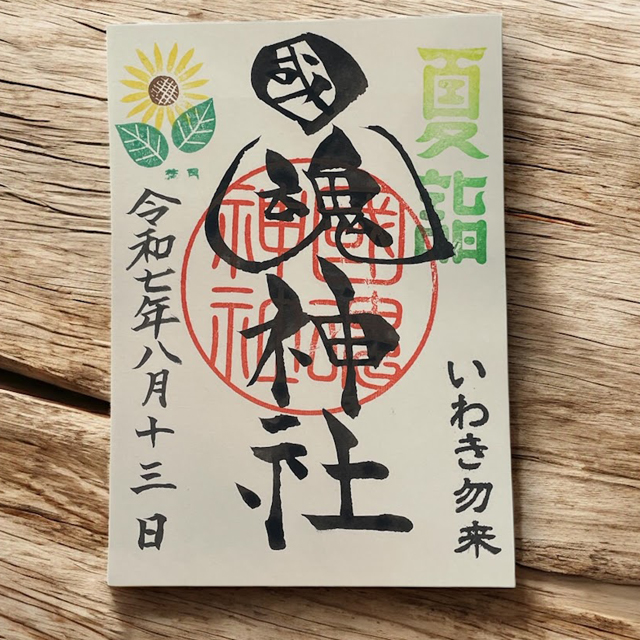 夏詣
いわき勿来
國魂神社
國魂神社
令和七年八月十三日